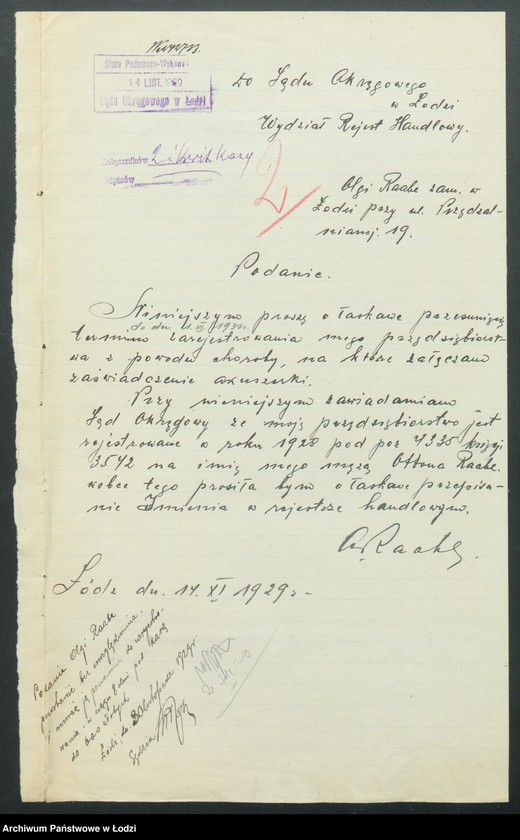 Biuro Podawczo-Wykona
14 LIST. 1929
Sądu Okręgowego w Łodzi
Do Sądu Okręgowego
w Łodzi
Wydział Rejest Handlowy.
Załączników
Odpisów
2
Olgi Raabe zam. w
Łodzi przy ul. Przędzal-
nianej 19.
Podanie.
Niniejszym proszę o łaskawe przesunięcie
do dn. 1.
terminu zarejestrowania mego przedsiębiorst-
wa z powodu choroby, na które załączam
zaświadczenie akuszerki.
Przy niniejszym zawiadamiam
Sąd Okręgowy że moje przedsiębiorstwo jest
rejestrowane w roku 1928 pod poz 4335 księgi
3542 na imię mego męża Ottona Raabe.
wobec tego prosiła bym o łaskawe przepisa-
nie Imienia w rejestrze handlowym.
O. Raabe.
Łódź dn. 14. XI 1929 r -
Podanie Olgi Raabe
pozostawić bez uwzględnienia
i wezwać ją ponownie do
w ciągu 8 dni pod karą
do 200 złotych
Łódź, dn listopada 1929 r
Sędzia
Archiwum Państwowe w Łodzi